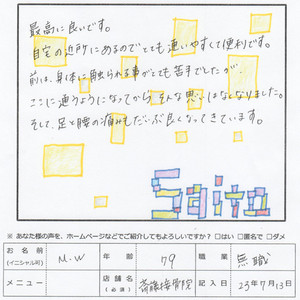 最高に良いです。
自宅の近所にあるのでとても通いやすくて便利です。
前は、身体に触られる事がとても苦手でしたが、
ここに通うようになってから そんな思いはなくなりました。
そして、足と腰の痛みもだいぶ良くなってきています。
Saito
※ あなた様の声を、ホームページなどでご紹介してもよろしいですか？ □はい □匿名で □ダメ
お名前 (イニシャル可) M.W 年齢 79 職業 無職
メニュー 店舗名 (必須) 斎藤接骨院 記入日 23年7月13日